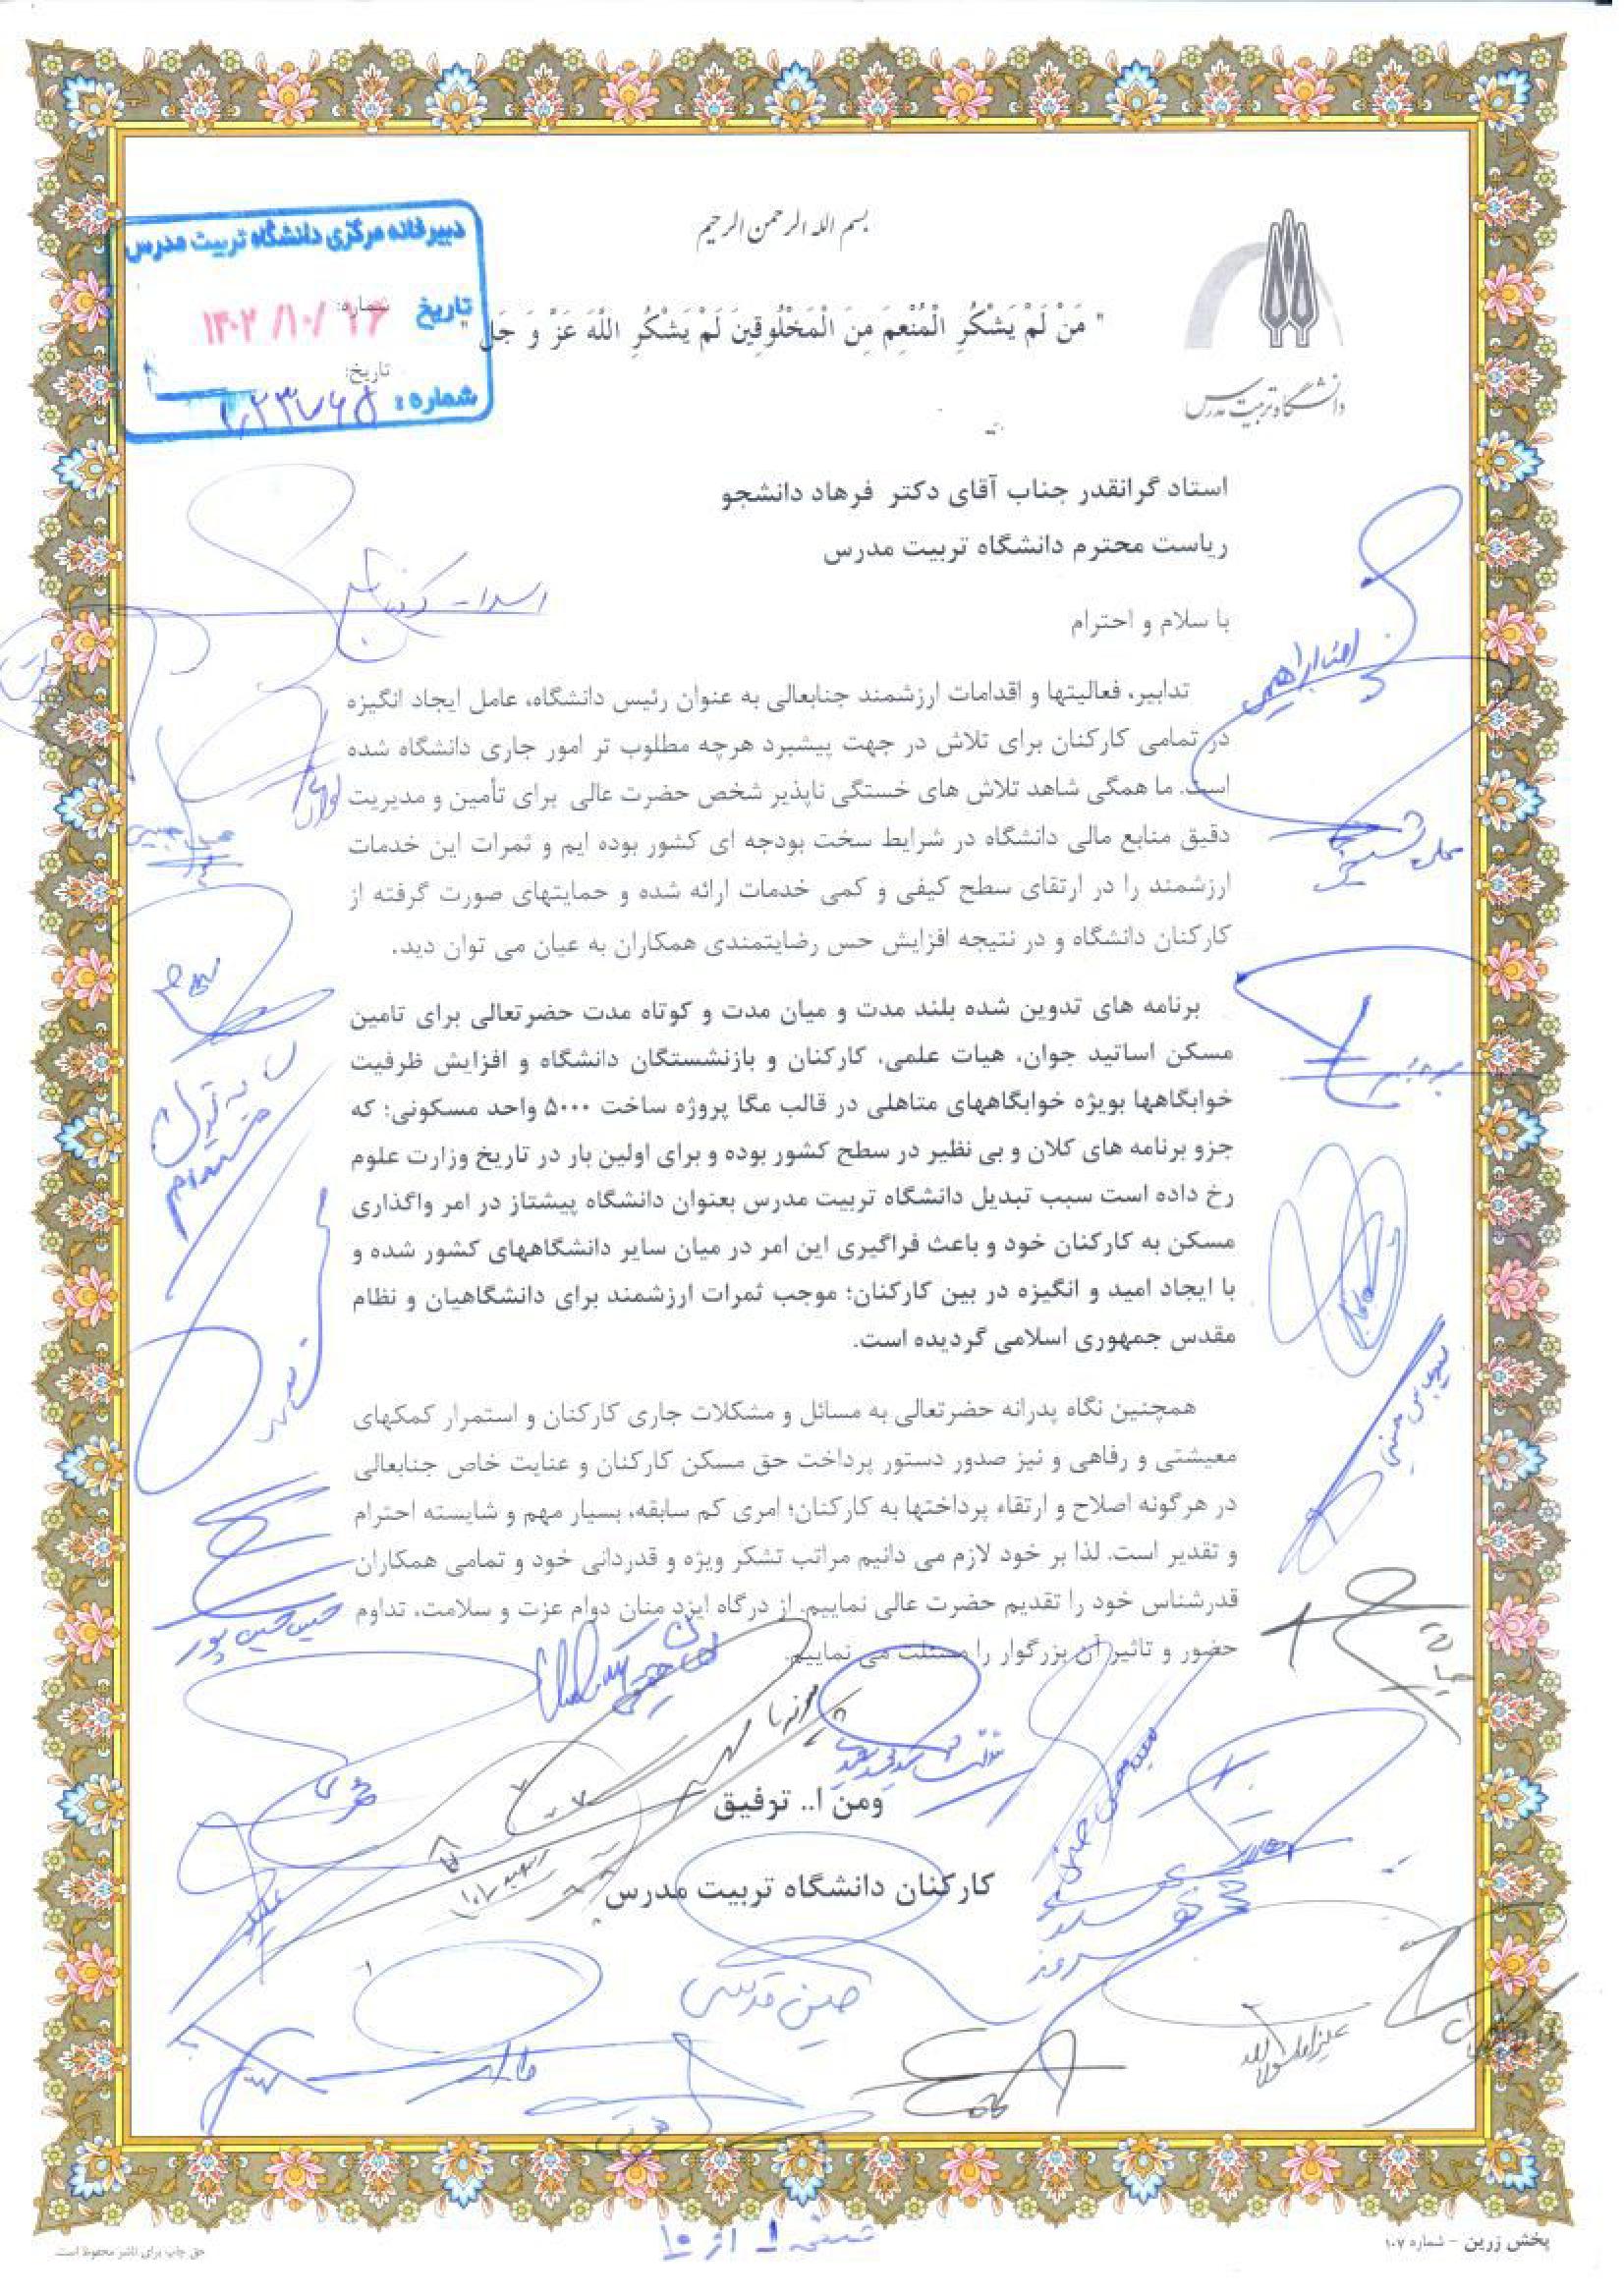 بسم الله الرحمن الرحیم
دبیرخانه مرکزی دانشگاه تربیت مدرس
تاریخ ۱۴۰۲/۱۰/۱۶
شماره:
تاریخ:
شماره :
" مَنْ لَمْ یَشْکُرِ الْمُنْعِمَ مِنَ الْمَخْلُوقِینَ لَمْ یَشْکُرِ اللَّهَ عَزَّ وَ جَل "
دانشگاه تربیت مدرس
استاد گرانقدر جناب آقای دکتر فرهاد دانشجو
ریاست محترم دانشگاه تربیت مدرس
با سلام و احترام
تدابیر، فعالیتها و اقدامات ارزشمند جنابعالی به عنوان رئیس دانشگاه، عامل ایجاد انگیزه
در تمامی کارکنان برای تلاش در جهت پیشبرد هرچه مطلوب تر امور جاری دانشگاه شده
است. ما همگی شاهد تلاش های خستگی ناپذیر شخص حضرت عالی برای تأمین و مدیریت
دقیق منابع مالی دانشگاه در شرایط سخت بودجه ای کشور بوده ایم و ثمرات این خدمات
ارزشمند را در ارتقای سطح کیفی و کمی خدمات ارائه شده و حمایتهای صورت گرفته از
کارکنان دانشگاه و در نتیجه افزایش حس رضایتمندی همکاران به عیان می توان دید.
برنامه های تدوین شده بلند مدت و میان مدت و کوتاه مدت حضرتعالی برای تامین
مسکن اساتید جوان، هیات علمی، کارکنان و بازنشستگان دانشگاه و افزایش ظرفیت
خوابگاهها بویژه خوابگاههای متاهلی در قالب مگا پروژه ساخت ۵۰۰۰ واحد مسکونی؛ که
جزو برنامه های کلان و بی نظیر در سطح کشور بوده و برای اولین بار در تاریخ وزارت علوم
رخ داده است سبب تبدیل دانشگاه تربیت مدرس بعنوان دانشگاه پیشتاز در امر واگذاری
مسکن به کارکنان خود و باعث فراگیری این امر در میان سایر دانشگاههای کشور شده و
با ایجاد امید و انگیزه در بین کارکنان؛ موجب ثمرات ارزشمند برای دانشگاهیان و نظام
مقدس جمهوری اسلامی گردیده است.
همچنین نگاه پدرانه حضرتعالی به مسائل و مشکلات جاری کارکنان و استمرار کمکهای
معیشتی و رفاهی و نیز صدور دستور پرداخت حق مسکن کارکنان و عنایت خاص جنابعالی
در هرگونه اصلاح و ارتقاء پرداختها به کارکنان؛ امری کم سابقه، بسیار مهم و شایسته احترام
و تقدیر است. لذا بر خود لازم می دانیم مراتب تشکر ویژه و قدردانی خود و تمامی همکاران
قدرشناس خود را تقدیم حضرت عالی نماییم. از درگاه ایزد منان دوام عزت و سلامت، تداوم
حضور و تاثیر آن بزرگوار را مسئلت می نماییم.
حسین حسین پور
ومن ا.. توفیق
کارکنان دانشگاه تربیت مدرس
۱ از ۱۰
پخش زرین - شماره ۱۰۷
حق چاپ برای ناشر محفوظ است